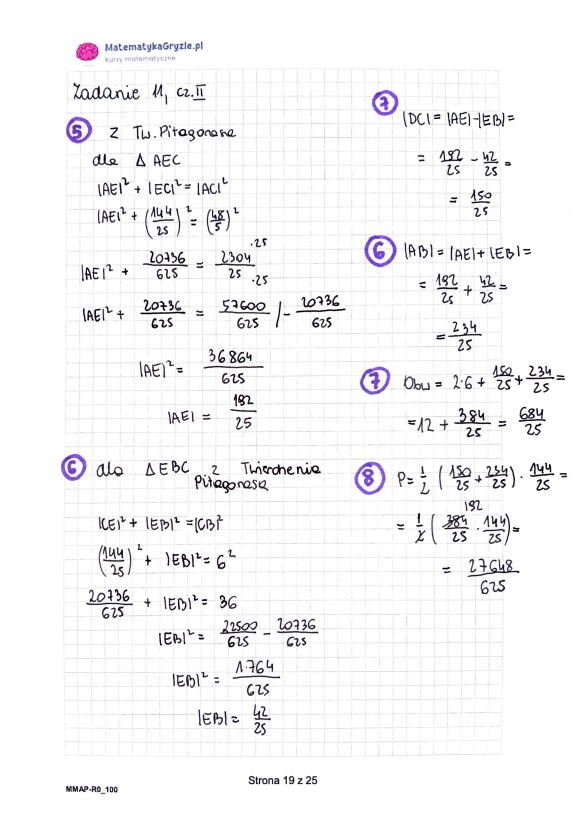 MatematykaGryzie.pl
Kursy matematyczne
Zadanie 11, cz.II
5 Z Tw. Pitagorasa
dla Δ AEC
|AE|² + |EC|² = |AC|²
|AE|² + (144/25)² = (48/5)²
|AE|² + 20736/625 = 2304/25 ·25 ·25
|AE|² + 20736/625 = 57600/625 /- 20736/625
|AE|² = 36864/625
|AE| = 192/25
6 dla ΔEBC z Twierdzenia
Pitagorasa
|CE|² + |EB|² = |CB|²
(144/25)² + |EB|² = 6²
20736/625 + |EB|² = 36
|EB|² = 22500/625 - 20736/625
|EB|² = 1764/625
|EB| = 42/25
7
|DC| = |AE|-|EB| =
= 192/25 - 42/25 =
= 150/25
6 |AB| = |AE| + |EB| =
= 192/25 + 42/25 =
= 234/25
7 Obw = 2·6 + 150/25 + 234/25 =
= 12 + 384/25 = 684/25
8 P = 1/2 (150/25 + 234/25) · 144/25 =
192
= 1/2 (384/25 · 144/25) =
= 27648/625
Strona 19 z 25
MMAP-R0_100